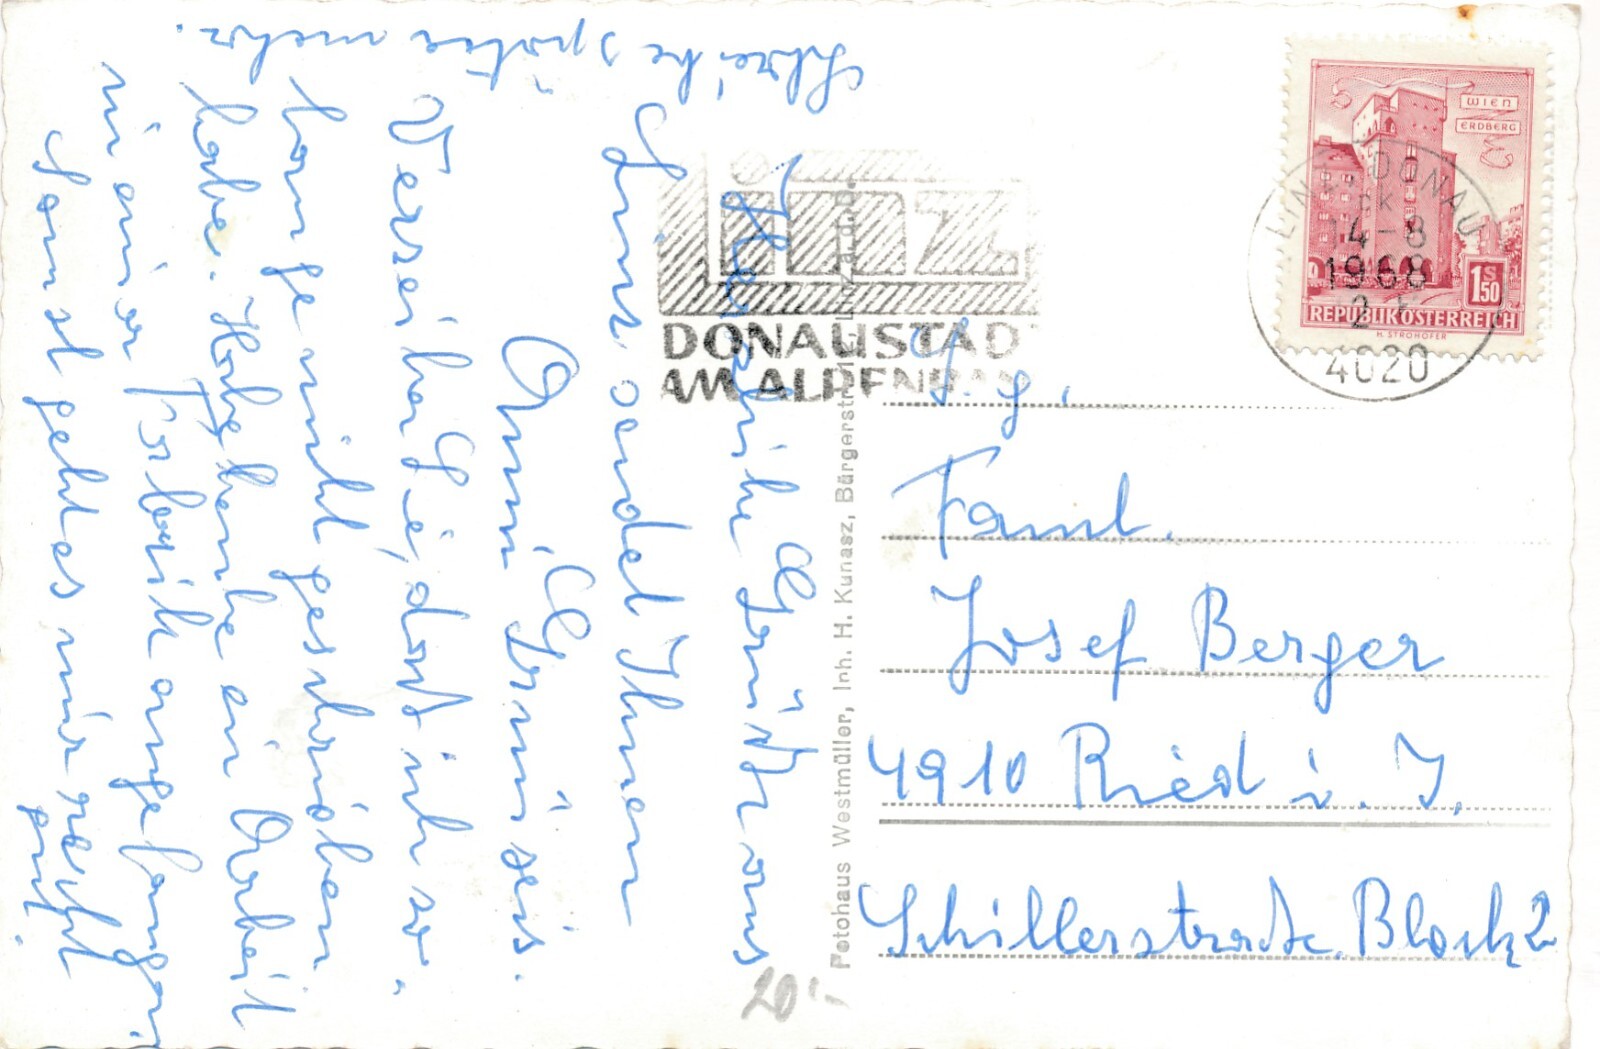 Herzliche Grüße aus
Linz sendet Ihnen
Anni Grünseis.
Verzeihen Sie, daß ich so
lange nicht geschrieben
habe. Habe heute ein Arbeit
in einer Fabrik angefangen.
Sonst geht es mir recht
gut.
Schreibe später mehr.
Fotohaus Westmüller, Inh. H. Kunasz, Bürgerstr. Linz/a.d.D.
linz
DONAUSTADT
AM ALPENRAN
WIEN
ERDBERG
S
1.50
REPUBLIK ÖSTERREICH
H. STROHOFER
LINZ, DONAU
14-8
1968
4020
S. g.
Faml.
Josef Berger
4910 Ried i. I.
Schillerstraße Block 2
20'-